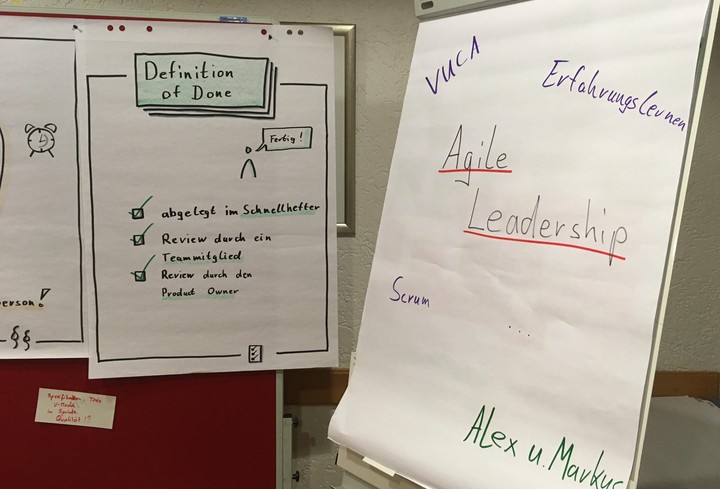 Definition
of Done
Fertig!
abgelegt im Schnellhefter
Review durch ein
Teammitglied
Review durch den
Product Owner
erson!
§§
VUCA
Erfahrungslernen
Agile
Leadership
Scrum
...
Alex u. Markus
V-Modell
Qualität!?